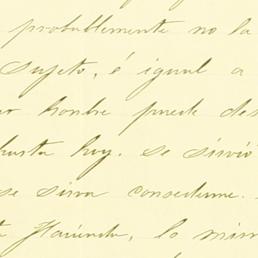 probablemente no la
Sujeto, é igual a
hombre puede des
hasta hoy. se sirvió
se sirva concederme.
Hacienda, lo mism